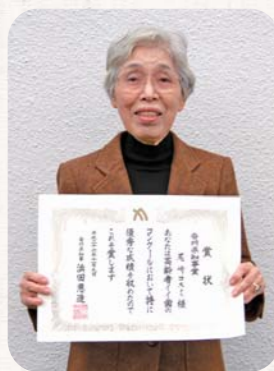 賞状
香川県知事賞
尾崎ヨスミ様
あなたは高齢者イイ歯の
コンクールにおいて特に
優秀な成績を収めたので
これを賞します
香川県知事 浜田恵造